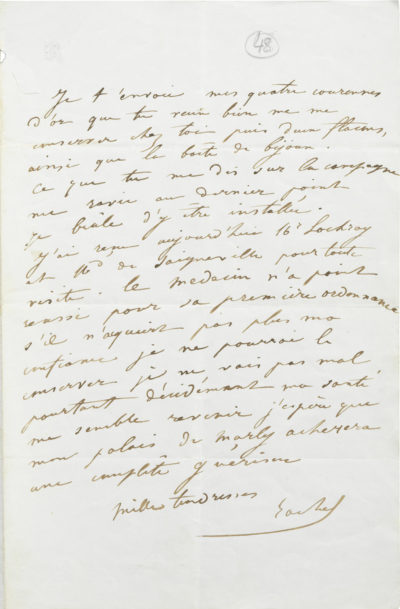 48
Je t'envoie mes quatre couronnes
d'or que tu veux bien me
conserver chez toi puis deux flacons,
ainsi que la boete de bijoux.
Ce que tu me dis sur la campagne
me ravie au dernier point
Je brûle d'y être installée.
J'ai reçu aujourd'hui Lockroy
et de pour toute
visite. le medecin n'a point
reussi pour sa première ordonnance
s'il n'aquiert pas plus ma
confiance je ne pourrai le
conserver je ne vais pas mal
pourtant décidément ma santé
me semble revenir j'espère que
mon palais de Marly achevera
une complète guérison
Milles tendresses
Rachel